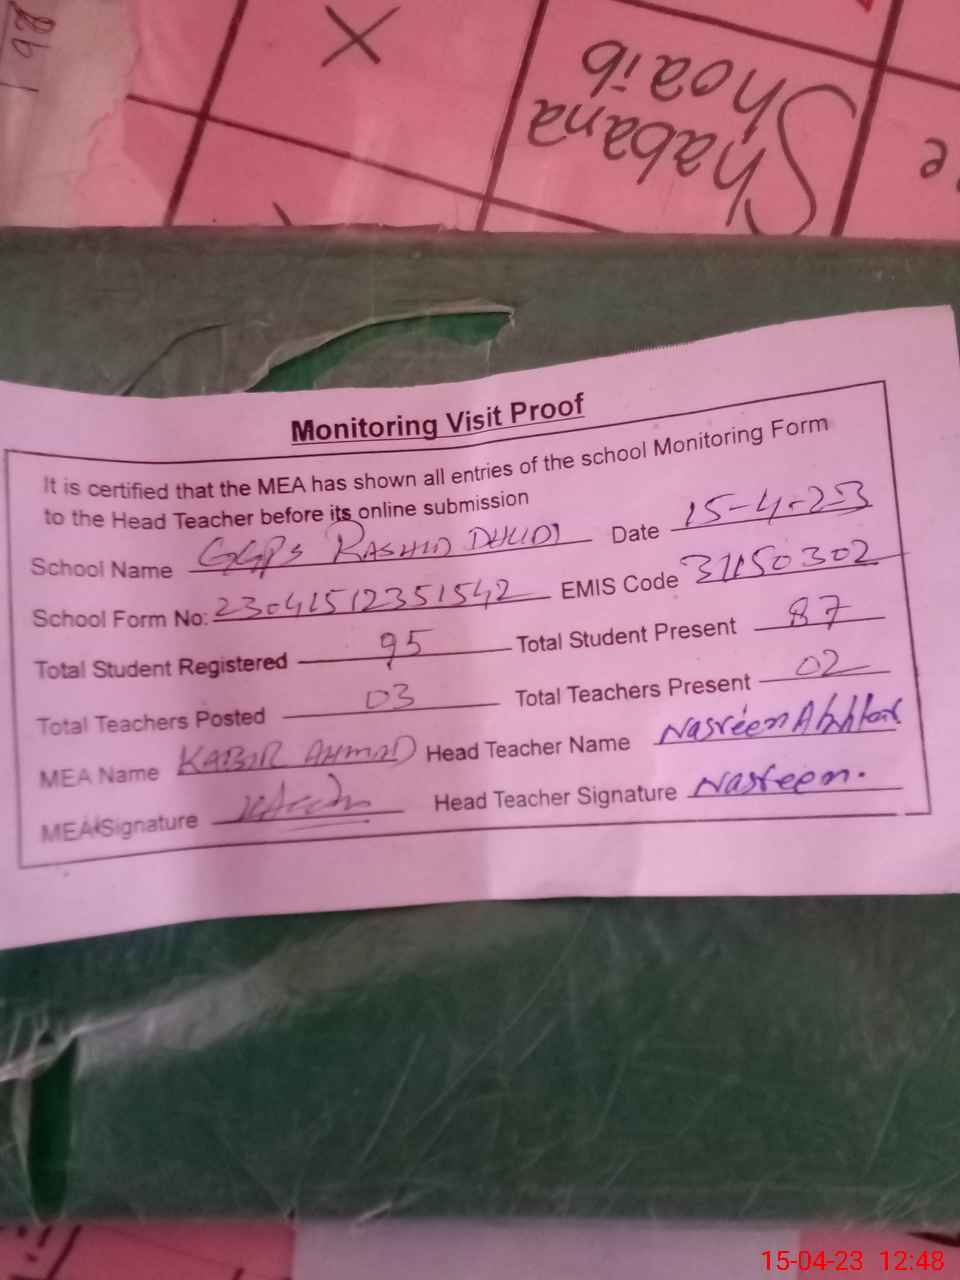 198
Shabana
Shoaib
Monitoring Visit Proof
It is certified that the MEA has shown all entries of the school Monitoring Form
to the Head Teacher before its online submission
School Name GGPS RASHID DHUDI Date 15-4-23
School Form No: 23041512351542 EMIS Code 31150302
Total Student Registered 95 Total Student Present 87
Total Teachers Posted 03 Total Teachers Present 02
MEA Name KABIR AHMAD Head Teacher Name Nasreen Akhtar
MEA Signature Head Teacher Signature Nasreen.
15-04-23 12:48